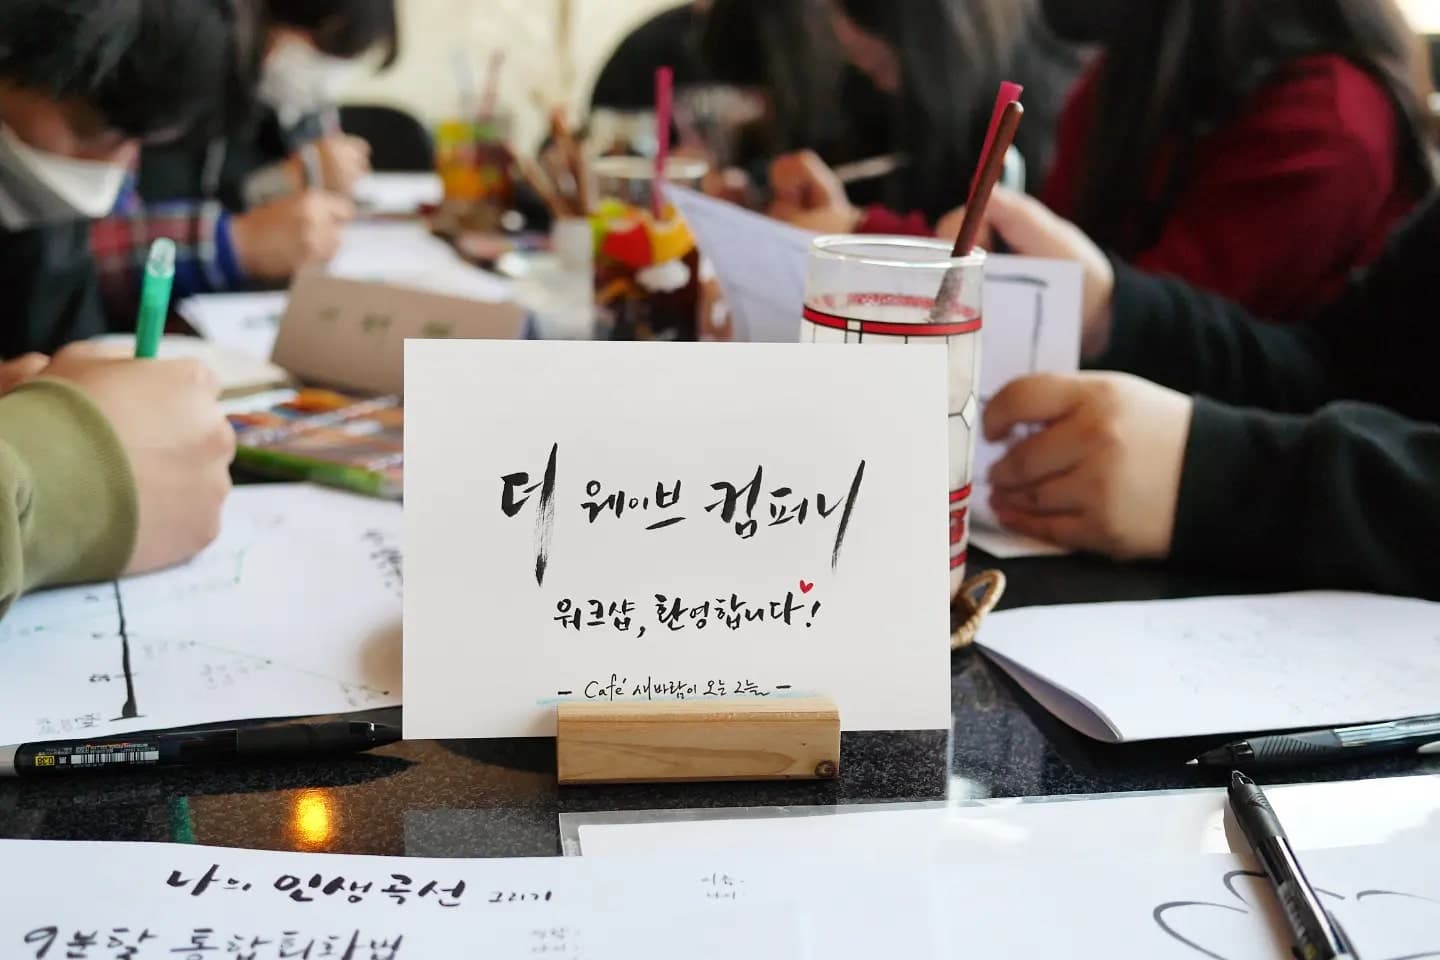 더 웨이브 컴퍼니
워크샵, 환영합니다!
- Café 새바람이 오는 그늘 -
나의 인생곡선 그리기
9분할 통합회화법
이름:
나이: